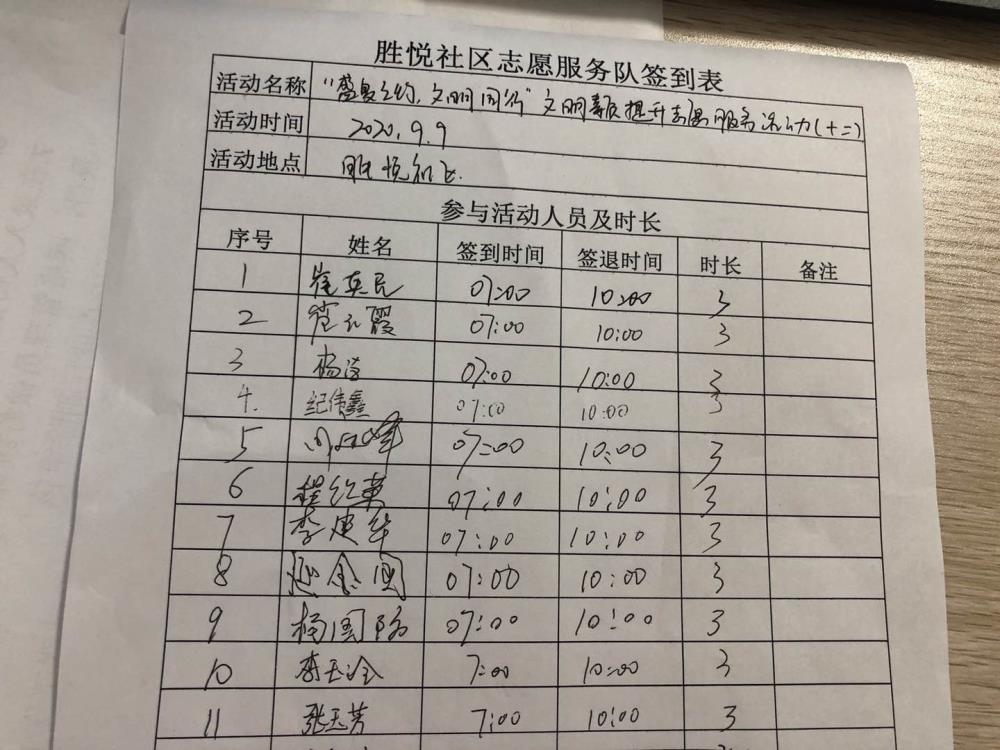 胜悦社区志愿服务队签到表
活动名称 "盛夏之约,文明同行"文明素质提升志愿服务活动(十二)
活动时间 2020.9.9
活动地点 胜悦社区
参与活动人员及时长
序号 姓名 签到时间 签退时间 时长 备注
1 崔英民 07:00 10:00 3
2 崔云霞 07:00 10:00 3
3 杨洁 07:00 10:00 3
4. 纪伟鑫 07:00 10:00 3
5 07:00 10:00 3
6 程红英 07:00 10:00 3
7 李建华 07:00 10:00 3
8 07:00 10:00 3
9 杨国际 07:00 10:00 3
10 李玉 7:00 10:00 3
11 张玉芳 7:00 10:00 3